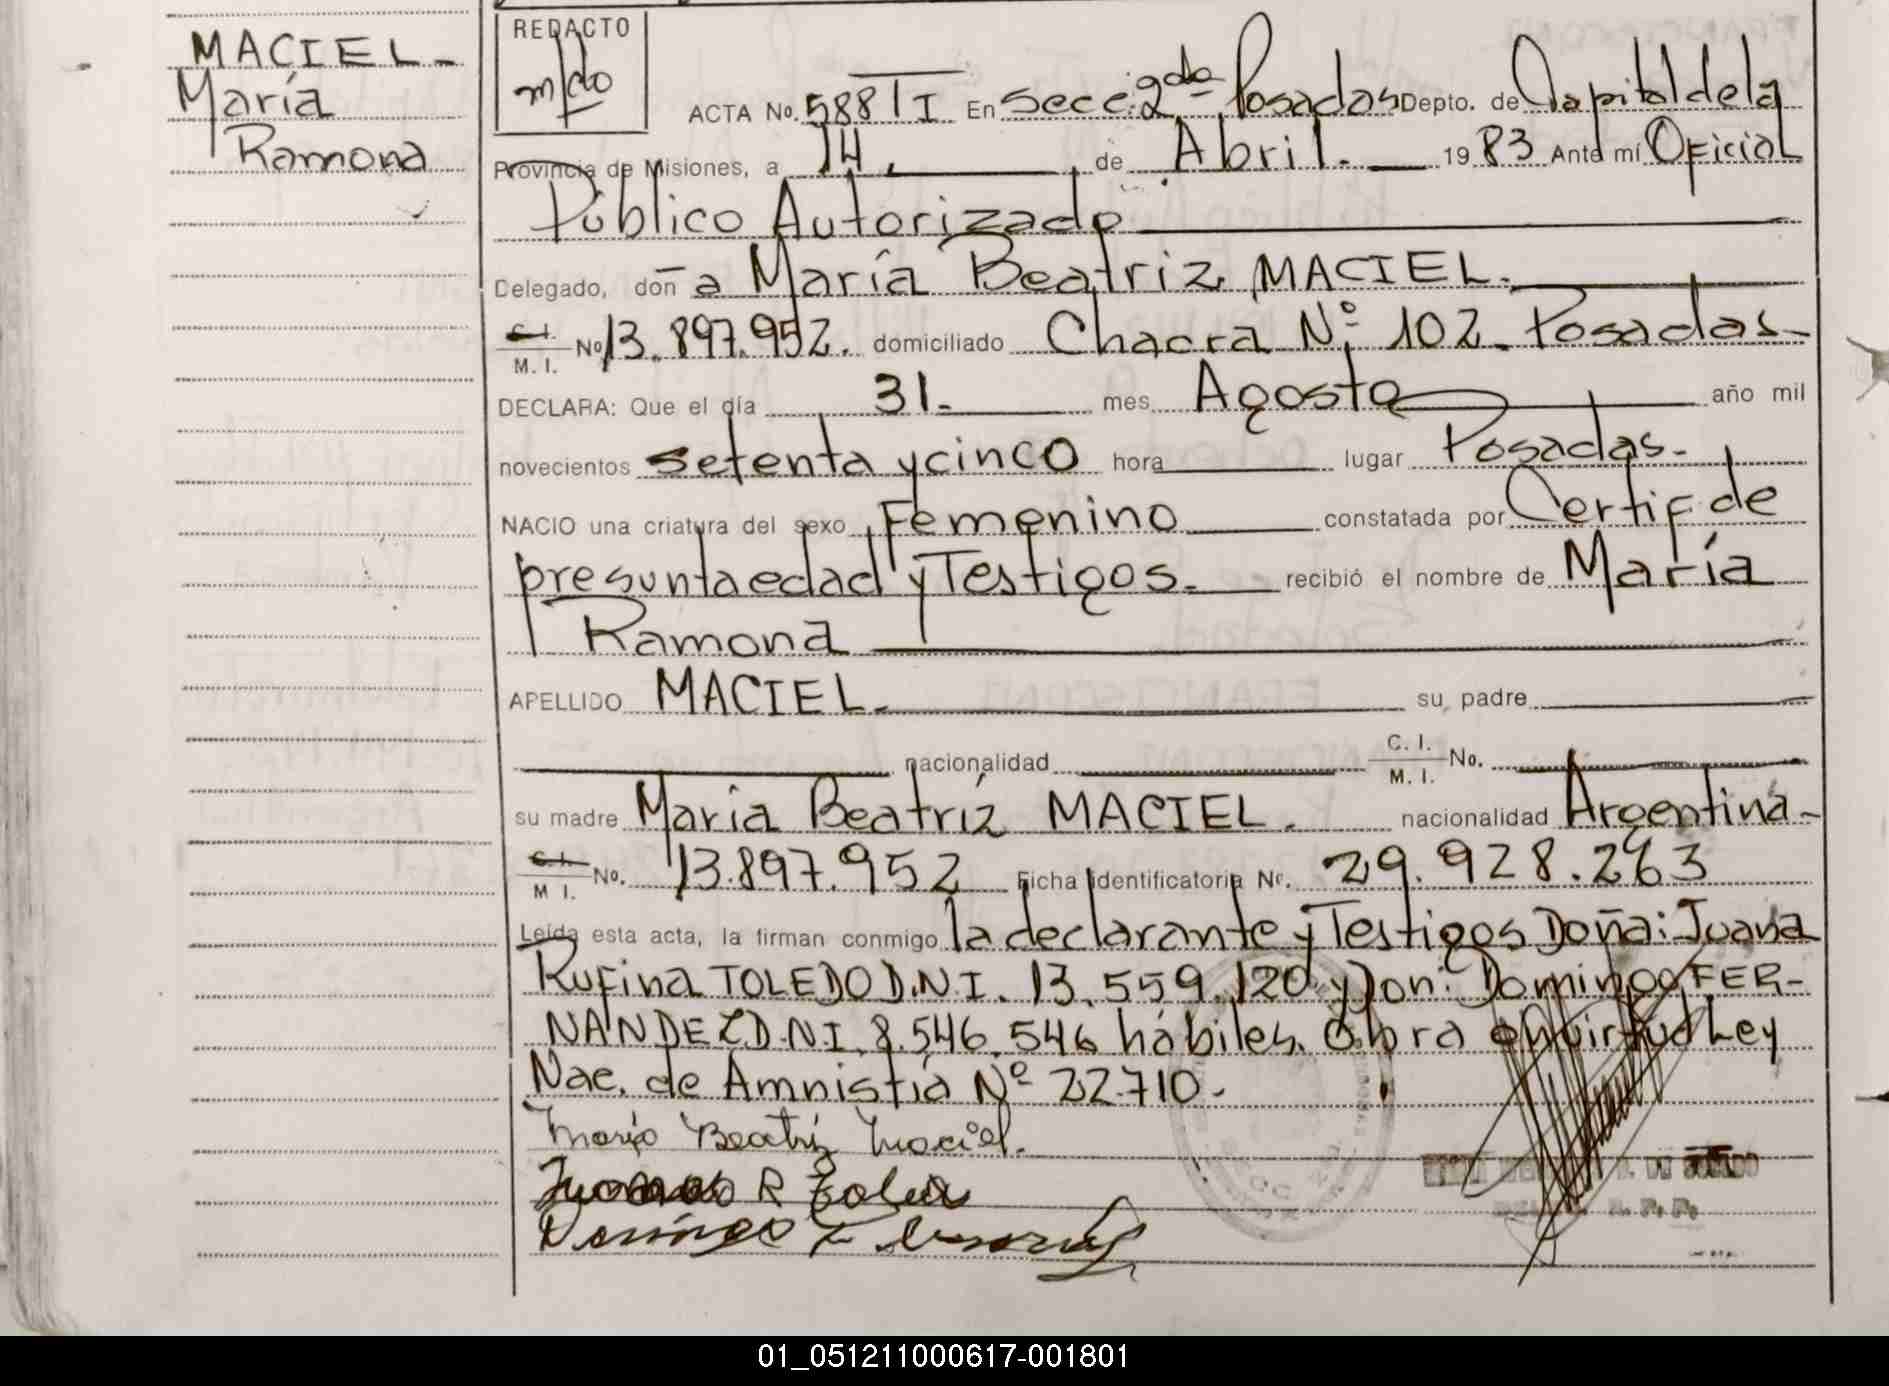 MACIEL-
María
Ramona
REDACTO
m/do
ACTA No. 588 TI En Secc. 2da Posadas Depto. de Capital de la
Provincia de Misiones, a 14. de Abril. 1983 Ante mí Oficial
Público Autorizado
Delegado, doñ a María Beatriz MACIEL.
C. I. M. I. No 13.897.952. domiciliado Chacra Nº 102. Posadas-
DECLARA: Que el día 31. mes Agosto año mil
novecientos setenta y cinco hora lugar Posadas-
NACIO una criatura del sexo Femenino constatada por Certif de
presunta edad y Testigos. recibió el nombre de María
Ramona
APELLIDO MACIEL. su padre
nacionalidad C. I. M. I. No.
su madre María Beatríz MACIEL. nacionalidad Argentina-
C. I. M I. No. 13.897.952 Ficha Identificatoria Nº. 29.928.263
Leída esta acta, la firman conmigo la declarante y Testigos Doña: Juana
Rufina TOLEDO D.N.I. 13.559.120 y Don: Domingo FER-
NANDEZ D.N.I. 8.546.546 hábiles. Obra en virtud Ley
Nac. de Amnistía Nº 22.710.
María Beatriz Maciel.
R Toledo
Domingo F
01_051211000617-001801